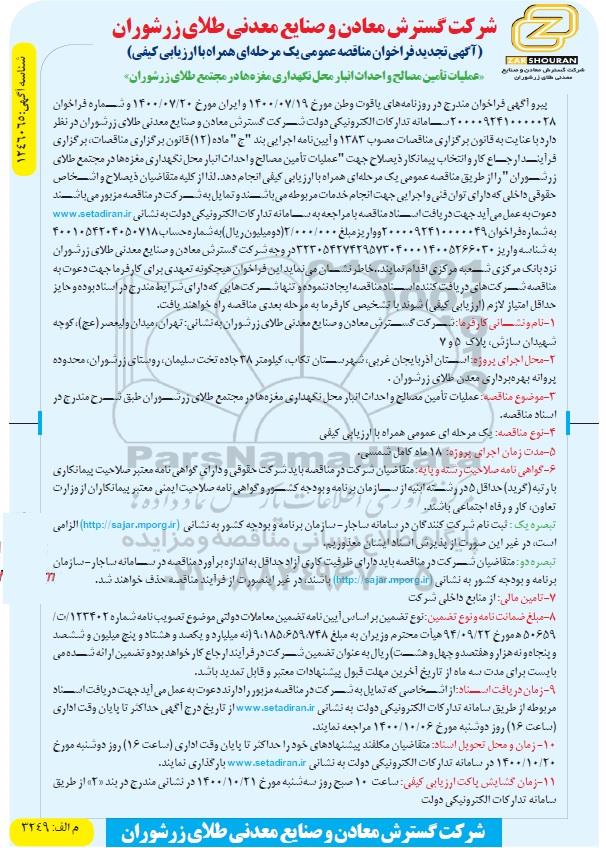 شرکت گسترش معادن و صنایع معدنی طلای زرشوران
(آگهی تجدید فراخوان مناقصه عمومی یک مرحله‌ای همراه با ارزیابی کیفی)
«عملیات تأمین مصالح و احداث انبار محل نگهداری مغزه‌ها در مجتمع طلای زرشوران»
ZARSHOURAN
شرکت گسترش معادن و صنایع
معدنی طلای زرشوران
شناسه آگهی: ۱۲۴۶۰۶۵
پیرو آگهی فراخوان مندرج در روزنامه‌های یاقوت وطن مورخ ۱۴۰۰/۰۷/۱۹ و ایران مورخ ۱۴۰۰/۰۷/۲۰ و شماره فراخوان
۲۰۰۰۰۹۲۴۱۰۰۰۰۰۲۸ سامانه تدارکات الکترونیکی دولت شرکت گسترش معادن و صنایع معدنی طلای زرشوران در نظر
دارد با عنایت به قانون برگزاری مناقصات مصوب ۱۳۸۳ و آیین‌نامه اجرایی بند "ج" ماده (۱۲) قانون برگزاری مناقصات، برگزاری
فرآیند ارجاع کار و انتخاب پیمانکار ذیصلاح جهت "عملیات تأمین مصالح و احداث انبار محل نگهداری مغزه‌ها در مجتمع طلای
زرشوران" را از طریق مناقصه عمومی یک مرحله‌ای همراه با ارزیابی کیفی انجام دهد. لذا از کلیه متقاضیان ذیصلاح و اشخاص
حقوقی داخلی که دارای توان فنی و اجرایی جهت انجام خدمات مربوطه می‌باشند و تمایل به شرکت در مناقصه مزبور می‌باشند
دعوت به عمل می‌آید جهت دریافت اسناد مناقصه با مراجعه به سامانه تدارکات الکترونیکی دولت به نشانی www.setadiran.ir
به شماره فراخوان ۲۰۰۰۰۹۲۴۱۰۰۰۰۰۴۹ و واریز مبلغ ۲/۰۰۰/۰۰۰ (دو میلیون ریال) به شماره حساب ۴۰۰۱۰۵۴۲۰۴۰۵۰۷۱۸
به شناسه واریز ۳۲۳۰۵۴۲۷۴۲۹۵۷۳۰۴۰۰۰۱۴۰۰۵۲۶۶۰۳۰ در وجه شرکت گسترش معادن و صنایع معدنی طلای زرشوران
نزد بانک مرکزی شعبه مرکزی اقدام نمایند.. خاطر نشان می‌نماید این فراخوان هیچگونه تعهدی برای کارفرما جهت دعوت به
مناقصه شرکت‌های دریافت کننده اسناد مناقصه ایجاد ننموده و تنها شرکت‌هایی که دارای شرایط مندرج در اسناد بوده و حایز
حداقل امتیاز لازم (ارزیابی کیفی) شوند با تشخیص کارفرما به مرحله بعدی مناقصه راه خواهند یافت.
۱-نام و نشانی کارفرما: شرکت گسترش معادن و صنایع معدنی طلای زرشوران به نشانی: تهران، میدان ولیعصر (عج)، کوچه
شهیدان سازش، پلاک ۵ و ۷
۲-محل اجرای پروژه: استان آذربایجان غربی، شهرستان تکاب، کیلومتر ۳۸ جاده تخت سلیمان، روستای زرشوران، محدوده
پروانه بهره‌برداری معدن طلای زرشوران .
۳-موضوع مناقصه: عملیات تأمین مصالح و احداث انبار محل نگهداری مغزه‌ها در مجتمع طلای زرشوران طبق شرح مندرج در
اسناد مناقصه.
۴-نوع مناقصه: یک مرحله ای عمومی همراه با ارزیابی کیفی
۵-مدت زمان اجرای پروژه: ۱۸ ماه کامل شمسی.
۶-گواهی نامه صلاحیت رسته و پایه: متقاضیان شرکت در مناقصه باید شرکت حقوقی و دارای گواهی نامه معتبر صلاحیت پیمانکاری
با رتبه (گرید) حداقل ۵ در رشته ابنیه از سازمان برنامه و بودجه کشور و گواهی نامه صلاحیت ایمنی معتبر پیمانکاران از وزارت
تعاون، کار و رفاه اجتماعی باشند.
تبصره یک : ثبت نام شرکت کنندگان در سامانه ساجار- سازمان برنامه و بودجه کشور به نشانی (http://sajar.mporg.ir) الزامی
است، در غیر این صورت از پذیرش اسناد ایشان معذوریم.
تبصره دو: متقاضیان شرکت در مناقصه باید دارای ظرفیت کاری آزاد حداقل به اندازه برآورد مناقصه در سامانه ساجار- سازمان
برنامه و بودجه کشور به نشانی (http://sajar.mporg.ir) باشند، در غیر اینصورت از فرآیند مناقصه حذف خواهند شد.
۷-تامین مالی: از منابع داخلی شرکت
۸-مبلغ ضمانت نامه و نوع تضمین: نوع تضمین بر اساس آیین نامه تضمین معاملات دولتی موضوع تصویب نامه شماره ۱۲۳۴۰۲/ت/
۵۰۶۵۹ه مورخ ۹۴/۰۹/۲۲ هیأت محترم وزیران به مبلغ ۹،۱۸۵،۶۵۹،۷۴۸ (نه میلیارد و یکصد و هشتاد و پنج میلیون و ششصد
و پنجاه و نه هزار و هفتصد و چهل و هشت) ریال به عنوان تضمین شرکت در فرآیند ارجاع کار خواهد بود و تضمین ارائه شده می
بایست برای مدت سه ماه از تاریخ آخرین مهلت قبول پیشنهادات معتبر و قابل تمدید باشد.
۹-زمان دریافت اسناد: از اشخاصی که تمایل به شرکت در مناقصه مزبور را دارند دعوت به عمل می آید جهت دریافت اسناد
مربوطه از طریق سامانه تدارکات الکترونیکی دولت به نشانی www.setadiran.ir از تاریخ درج آگهی حداکثر تا پایان وقت اداری
(ساعت ۱۶) روز دوشنبه مورخ ۱۴۰۰/۱۰/۰۶ مراجعه نمایند.
۱۰-زمان و محل تحویل اسناد: متقاضیان مکلفند پیشنهادهای خود را حداکثر تا پایان وقت اداری (ساعت ۱۶) روز دوشنبه مورخ
۱۴۰۰/۱۰/۲۰ در سامانه تدارکات به نشانی www.setadiran.ir بارگذاری نمایند.
۱۱-زمان گشایش پاکت ارزیابی کیفی: ساعت ۱۰ صبح روز سه‌شنبه مورخ ۱۴۰۰/۱۰/۲۱ در نشانی مندرج در بند «۲» از طریق
سامانه تدارکات الکترونیکی دولت
شرکت گسترش معادن و صنایع معدنی طلای زرشوران
م الف: ۳۲۴۹